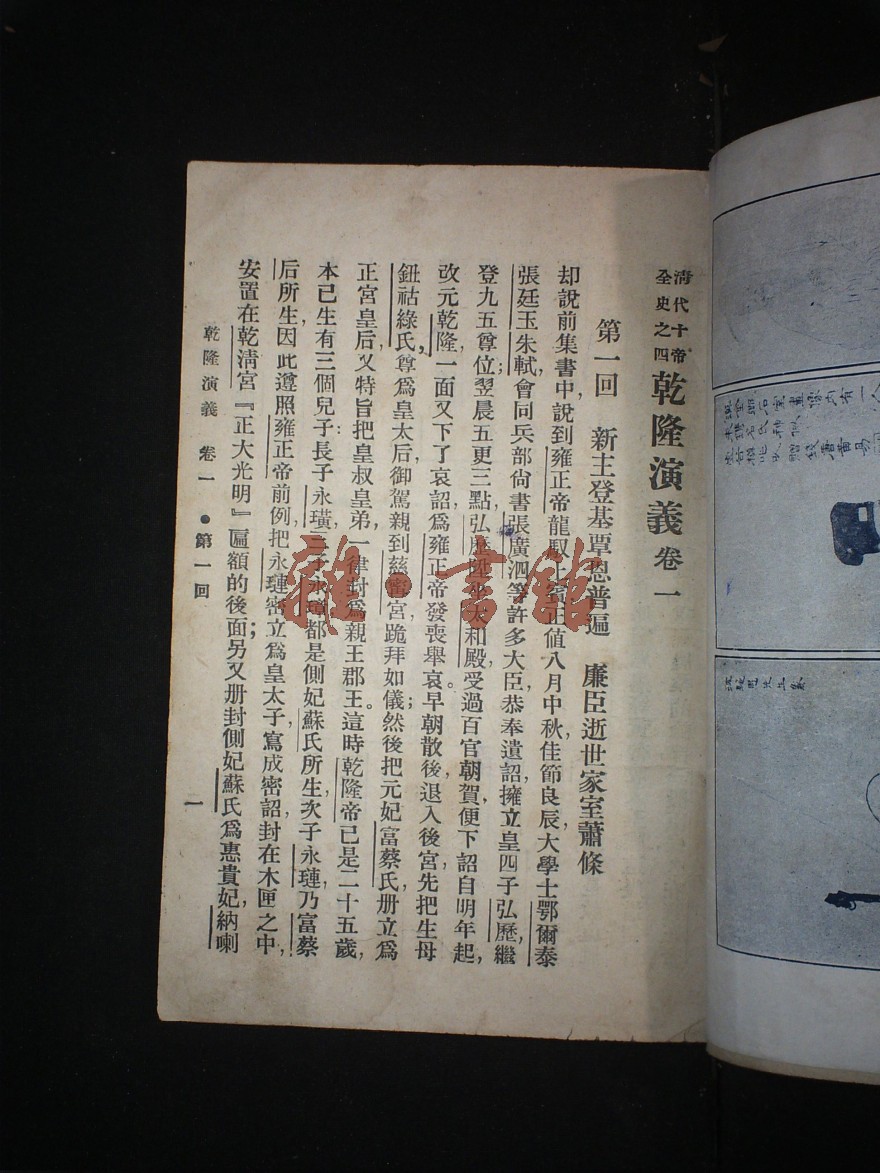 清代十帝
全史之四
乾隆演義 卷一
第一回 新主登基覃恩普遍 廉臣逝世家室蕭條
却說前集書中,說到雍正帝龍馭上賓,正值八月中秋,佳節良辰,大學士鄂爾泰
張廷玉朱軾,會同兵部尙書張廣泗等許多大臣,恭奉遺詔,擁立皇四子弘歷,繼
登九五尊位;翌晨五更三點,弘歷陞坐太和殿,受過百官朝賀,便下詔自明年起,
改元乾隆,一面又下了哀詔,爲雍正帝發喪舉哀。早朝散後,退入後宮,先把生母
鈕祜綠氏,尊爲皇太后,御駕親到慈寧宮,跪拜如儀;然後把元妃富蔡氏,册立爲
正宮皇后;又特旨把皇叔皇弟,一律封爲親王郡王。這時乾隆帝已是二十五歲,
本已生有三個兒子:長子永璜,三子永璋,都是側妃蘇氏所生,次子永璉,乃富蔡
后所生,因此遵照雍正帝前例,把永璉密立爲皇太子,寫成密詔,封在木匣之中,
安置在乾淸宮『正大光明』匾額的後面;另又册封側妃蘇氏爲惠貴妃,納喇
乾隆演義 卷一 ●第一回
一
雜·書館